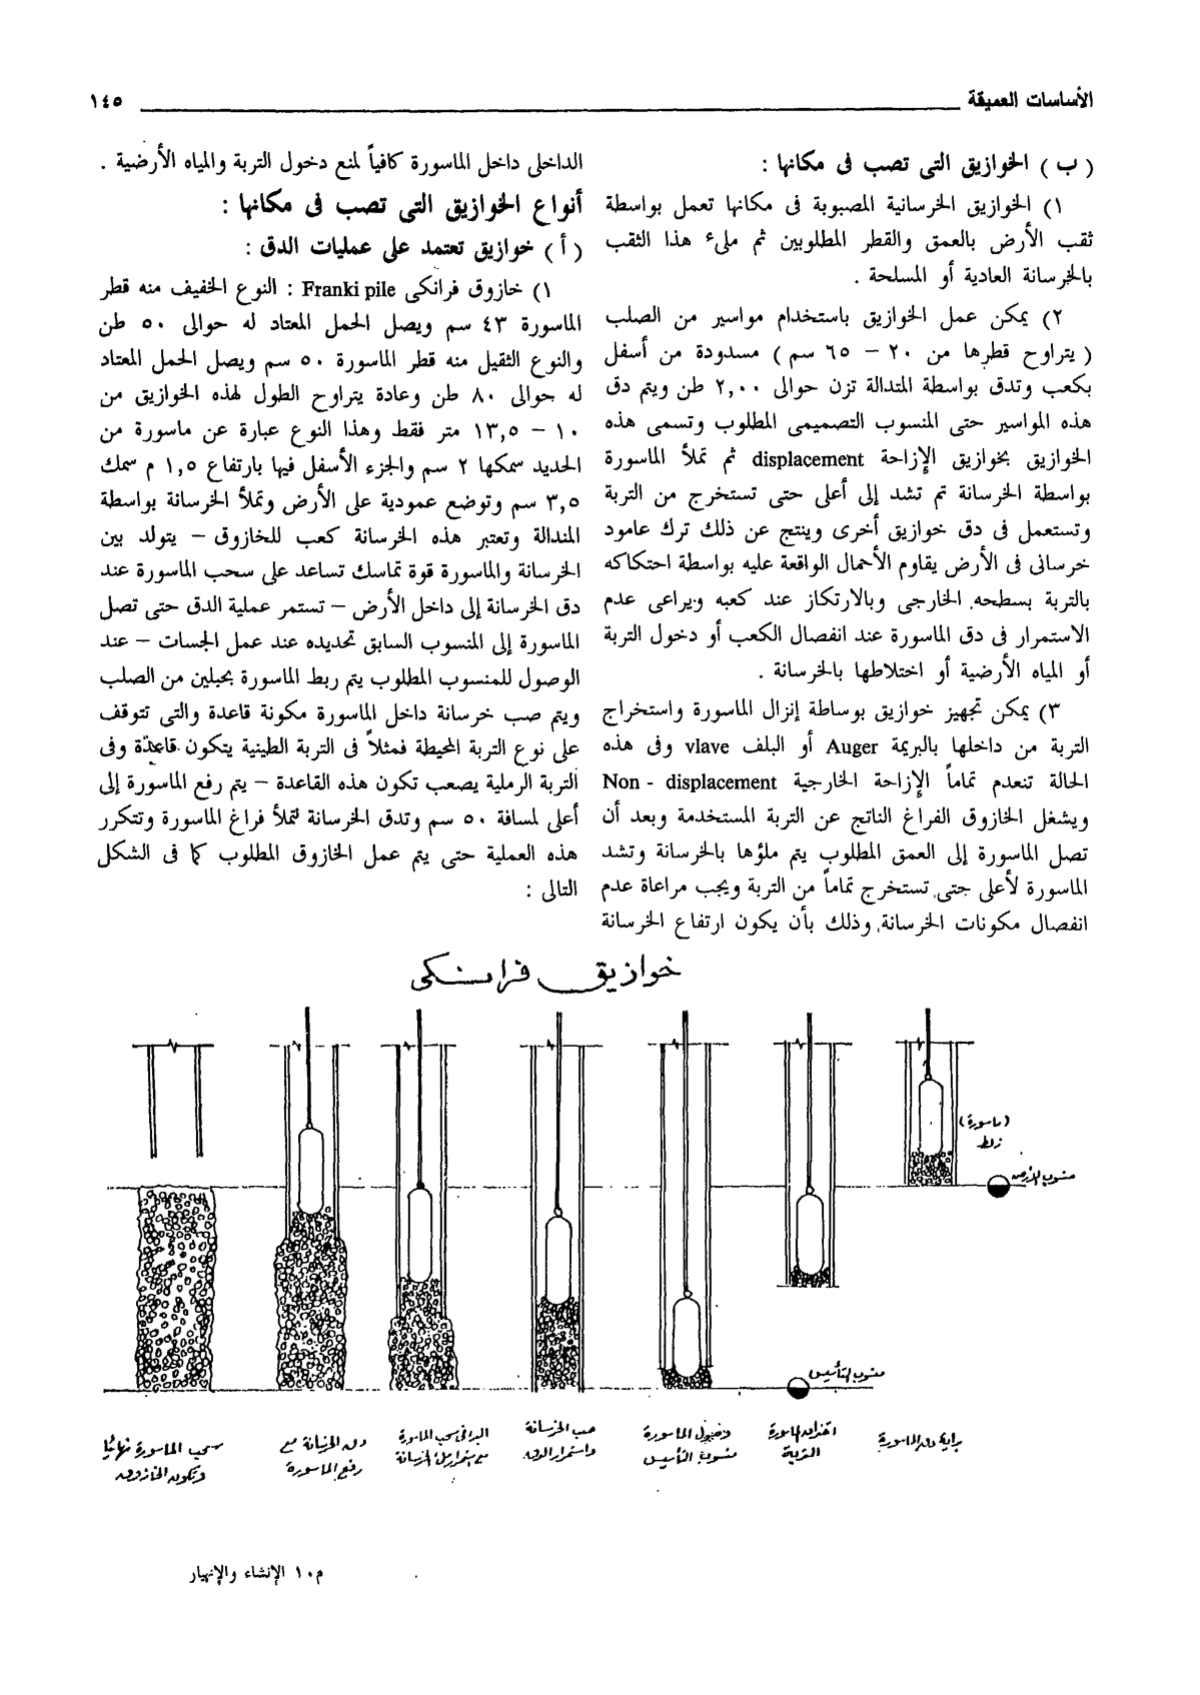 الأساسات العميقة ١٤٥
( ب ) الخوازيق التى تصب فى مكانها :
١) الخوازيق الخرسانية المصبوبة فى مكانها تعمل بواسطة
ثقب الأرض بالعمق والقطر المطلوبين ثم ملىء هذا الثقب
بالخرسانة العادية أو المسلحة .
٢) يمكن عمل الخوازيق باستخدام مواسير من الصلب
( يتراوح قطرها من ٢٠ – ٦٥ سم ) مسدودة من أسفل
بكعب وتدق بواسطة المتدالة تزن حوالى ٢,٠٠ طن ويتم دق
هذه المواسير حتى المنسوب التصميمى المطلوب وتسمى هذه
الخوازيق بخوازيق الإزاحة displacement ثم تملأ الماسورة
بواسطة الخرسانة تم تشد إلى أعلى حتى تستخرج من التربة
وتستعمل فى دق خوازيق أخرى وينتج عن ذلك ترك عامود
خرسانى فى الأرض يقاوم الأحمال الواقعة عليه بواسطة احتكاكه
بالتربة بسطحه الخارجى وبالارتكاز عند كعبه ويراعى عدم
الاستمرار فى دق الماسورة عند انفصال الكعب أو دخول التربة
أو المياه الأرضية أو اختلاطها بالخرسانة .
٣) يمكن تجهيز خوازيق بوساطة إنزال الماسورة واستخراج
التربة من داخلها بالبريمة Auger أو البلف vlave وفى هذه
الحالة تنعدم تماماً الإزاحة الخارجية Non - displacement
ويشغل الخازوق الفراغ الناتج عن التربة المستخدمة وبعد أن
تصل الماسورة إلى العمق المطلوب يتم ملؤها بالخرسانة وتشد
الماسورة لأعلى حتى تستخرج تماماً من التربة ويجب مراعاة عدم
انفصال مكونات الخرسانة وذلك بأن يكون ارتفاع الخرسانة
الداخلى داخل الماسورة كافياً لمنع دخول التربة والمياه الأرضية .
أنواع الخوازيق التى تصب فى مكانها :
( أ ) خوازيق تعتمد على عمليات الدق :
١) خازوق فرانكى Franki pile : النوع الخفيف منه قطر
الماسورة ٤٣ سم ويصل الحمل المعتاد له حوالى ٥٠ طن
والنوع الثقيل منه قطر الماسورة ٥٠ سم ويصل الحمل المعتاد
له حوالى ٨٠ طن وعادة يتراوح الطول لهذه الخوازيق من
١٠ – ١٣,٥ متر فقط وهذا النوع عبارة عن ماسورة من
الحديد سمكها ٢ سم والجزء الأسفل فيها بارتفاع ١,٥ م سمك
٣,٥ سم وتوضع عمودية على الأرض وتملأ الخرسانة بواسطة
المندالة وتعتبر هذه الخرسانة كعب للخازوق – يتولد بين
الخرسانة والماسورة قوة تماسك تساعد على سحب الماسورة عند
دق الخرسانة إلى داخل الأرض – تستمر عملية الدق حتى تصل
الماسورة إلى المنسوب السابق تحديده عند عمل الجسات – عند
الوصول للمنسوب المطلوب يتم ربط الماسورة بحبلين من الصلب
ويتم صب خرسانة داخل الماسورة مكونة قاعدة والتى تتوقف
على نوع التربة المحيطة فمثلاً فى التربة الطينية يتكون قاعدة وفى
التربة الرملية يصعب تكون هذه القاعدة – يتم رفع الماسورة إلى
أعلى لمسافة ٥٠ سم وتدق الخرسانة لتملأ فراغ الماسورة وتتكرر
هذه العملية حتى يتم عمل الخازوق المطلوب كما فى الشكل
التالى :
خوازيق فرانكى
(ماسورة)
زلط
منسوب الأرض
منسوب التأسيس
بداية دق الماسورة
اختراق الماسورة
التربة
وصول الماسورة
منسوب التأسيس
صب الخرسانة
واستمرار الدق
البدء فى سحب الماسورة
مع استمرار دق الخرسانة
دق الخرسانة مع
رفع الماسورة
سحب الماسورة نهائيا
وتكون الخازوق
م١٠ الإنشاء والإنهيار